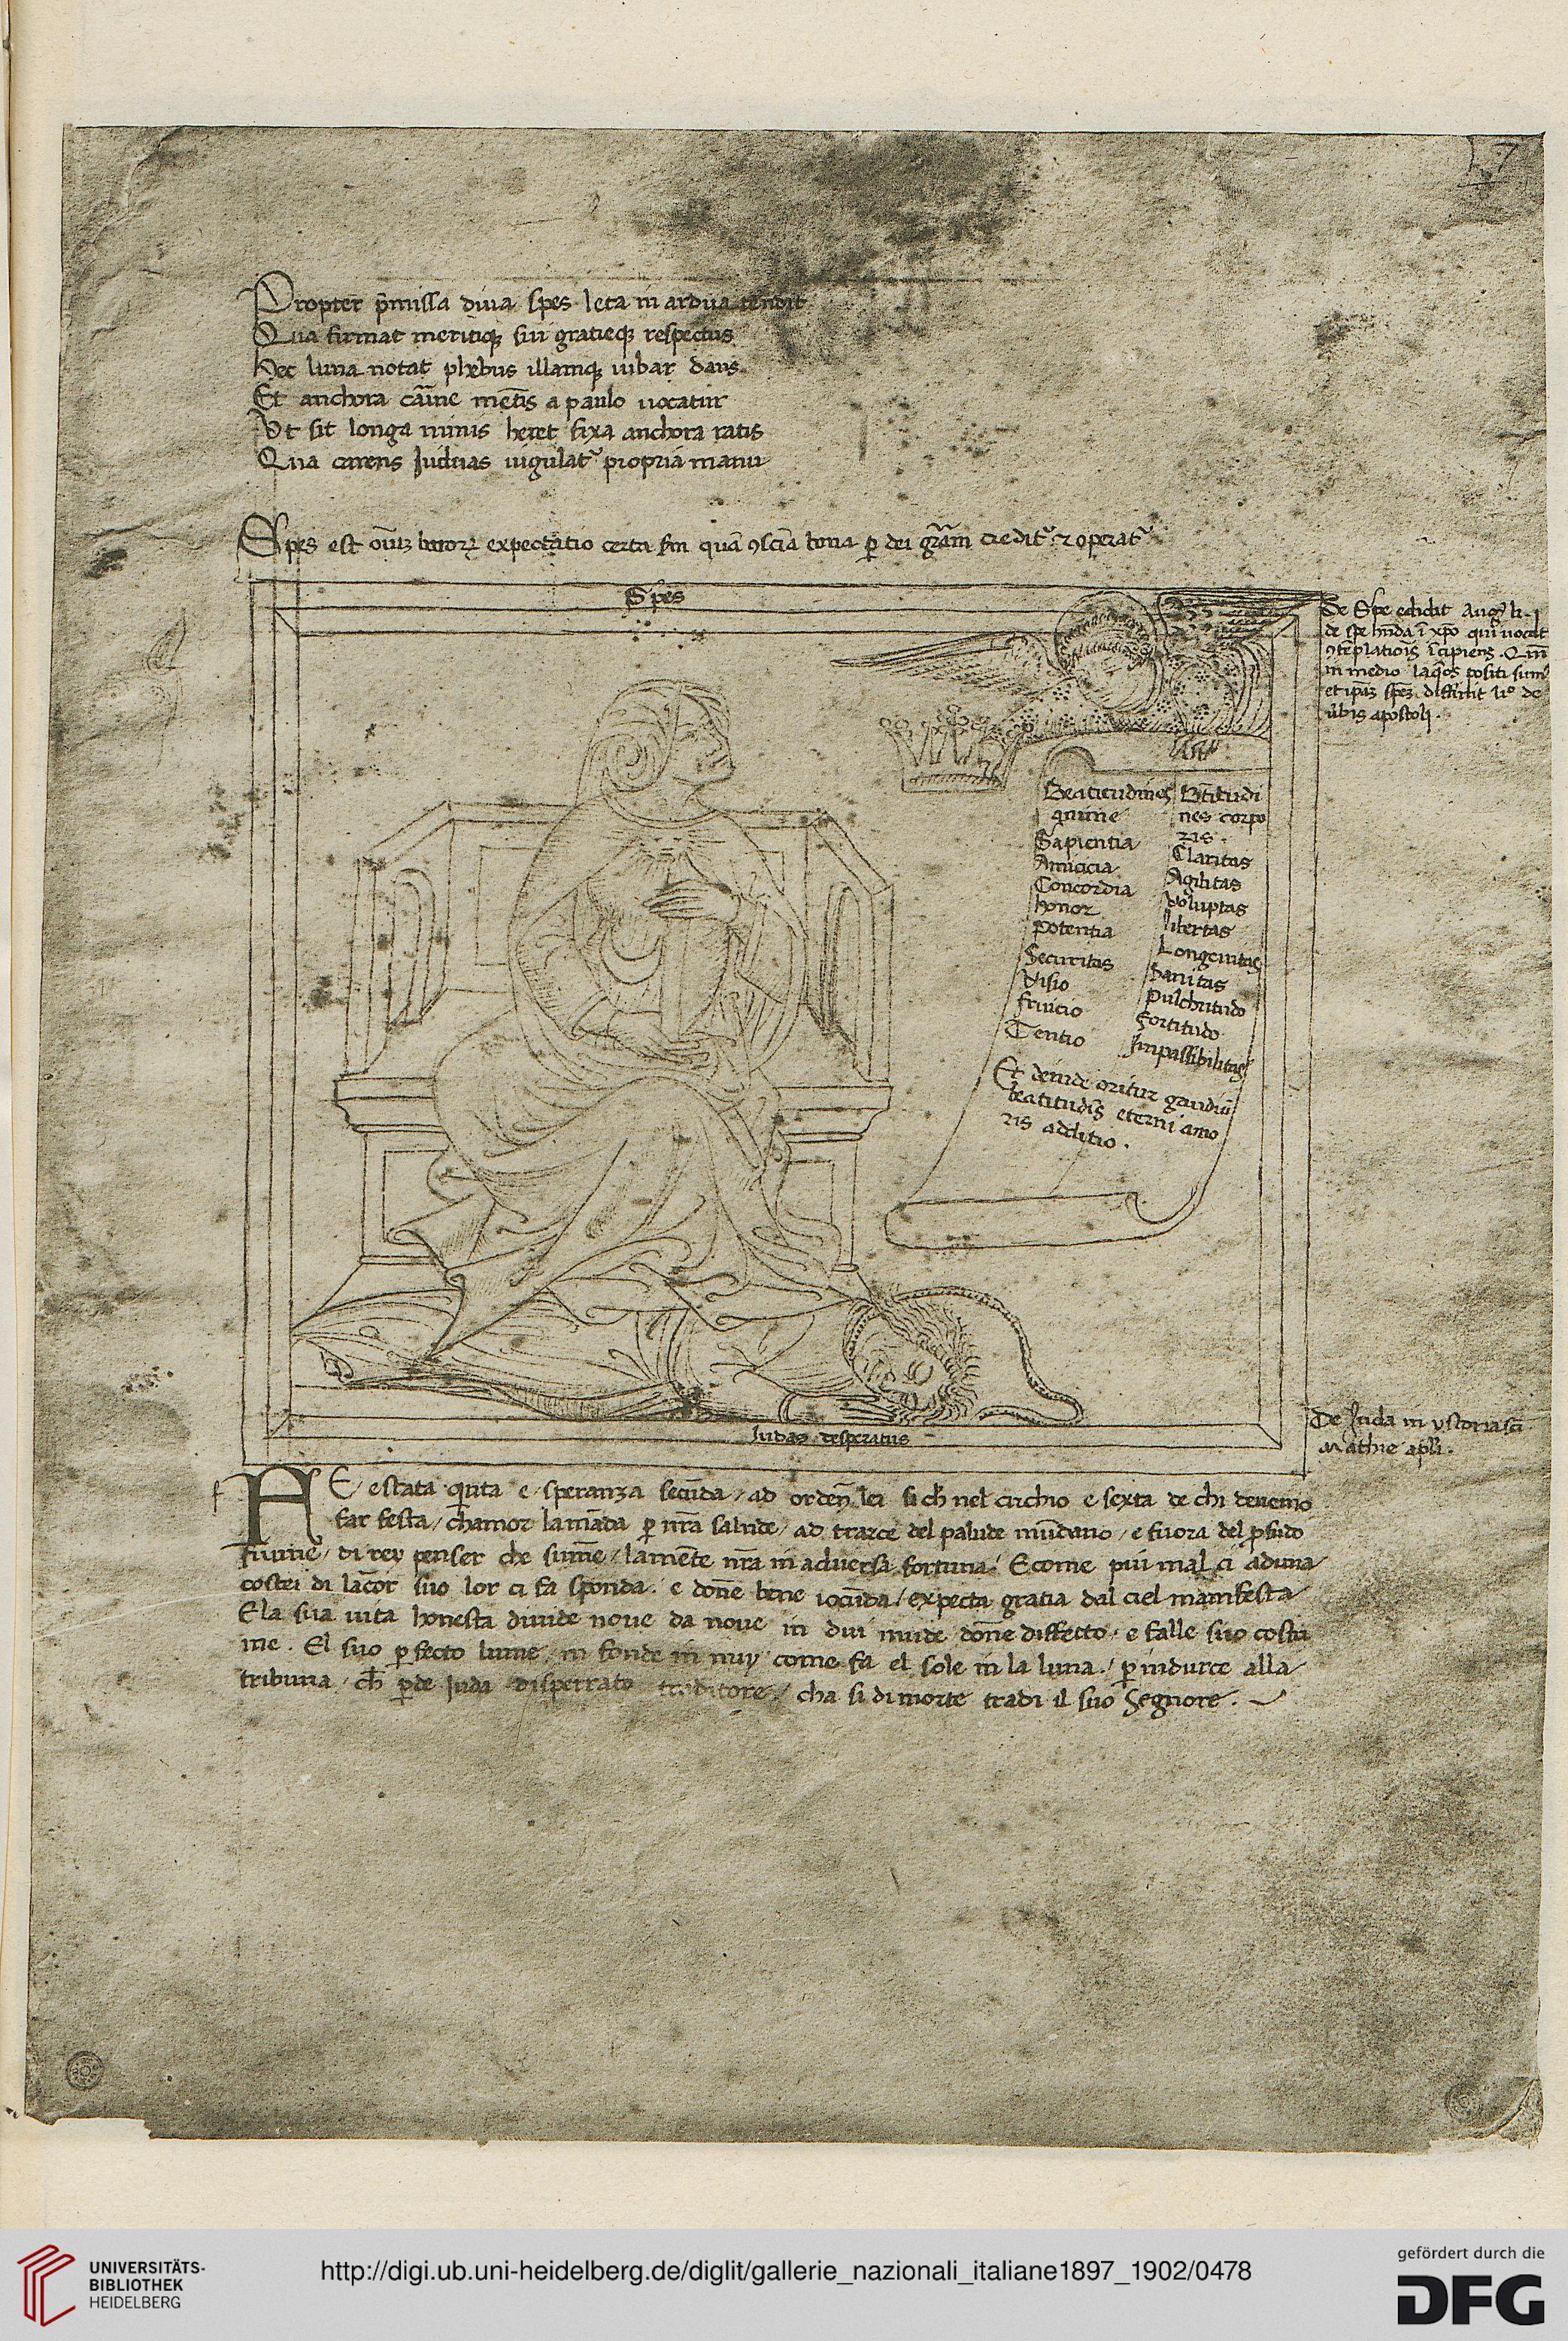 17
Propter p̄missa diva spes leta in ardua tendit
Qua firmat meritiqꝫ sui gratieqꝫ respectus
Hec luna notat phebus illamqꝫ iubar dans
Et anchora cām̄e mēt̄is a paulo uocatur
Ut sit longa minis heret fixa anchora ratis
Qua carens Judas iugulat᷑ propria manu
Spes est expectatio certa quā ↄsciā bona ꝑ dei gr̄am credit᷑ ⁊ operat᷑
Spes
De Spe edidit Aug᷒ li.
de spe hn̄da ī xp̄o qui uocat᷑
ↄtēplatiōis īcipiens. Qm̄
in medio laqōs positi sum᷒
et ip̄aꝫ spēꝫ diffinit li° de
ūbis apostoli.
Beatitudines
anime
Sapientia
Amicicia
Concordia
honor
Potentia
Securitas
Visio
fruicio
Tentio
Btītudi
nes corpo
ris.
Claritas
Agilitas
Voluptas
libertas
Longeuitas
Sanitas
Pulchritudo
Fortitudo
Impassibilitas
Et deinde oritur gaudiū
beatitudīs eterni amo
ris additio.
Judas desperatus
De Juda in ystoria sc̄i
Mathie apl̄i.
AE / estata quinta e / speranza secūda / ad ordēn lei si ch̄ nel circhio e sexta de chi deuemo
far festa / chamor lamāda ꝑ nr̄a salude / ad trarce del palude mūdano / e fuora del ꝓfūdo
fiume / di rey penser che sum̄e / lamēte nr̄a in aduersa fortuna / E come piu mal ci aduna
costei di lācor suo lor ci fa sponda. e dōne bene iocūda / expecta gratia dal ciel manifesta
E la sua uita honesta diuide noue da noue in dui nuide dōne diffecto / e falle suo costu
me. El suo ꝑfecto lume / in fonde in nuy come fa el sole in la luna. / ꝑ indurce alla
tribuna / ch̄ ꝑde Juda disperrato traditore / cha si di morte tradi il suo Segnore.
UNIVERSITÄTS-
BIBLIOTHEK
HEIDELBERG
http://digi.ub.uni-heidelberg.de/diglit/gallerie_nazionali_italiane1897_1902/0478
gefördert durch die
DFG